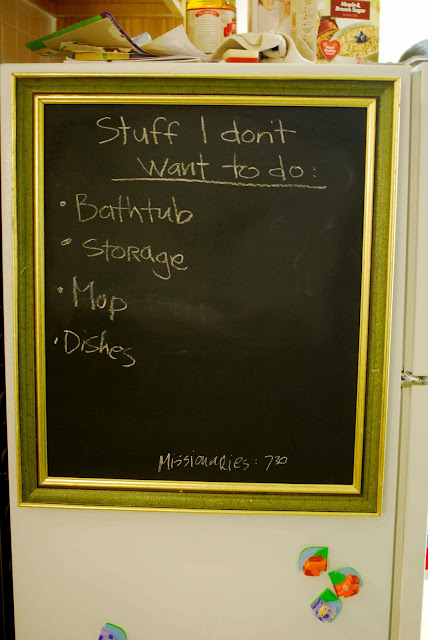 Maple &
Brown Sugar
Stuff I don't
Want to do:
• Bathtub
• Storage
• Mop
• Dishes
Missionaries: 730